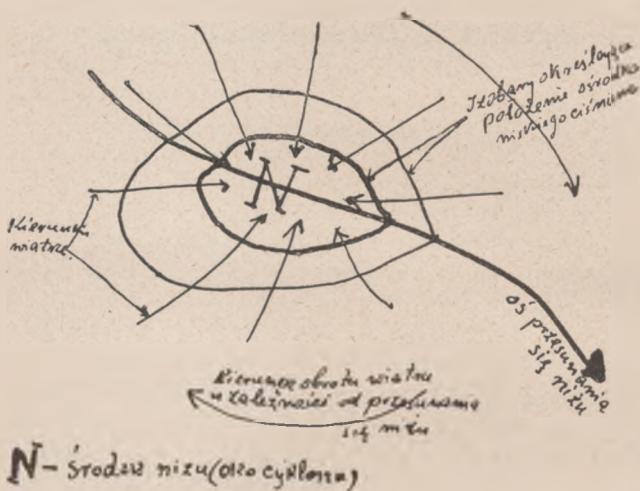 Izobary określające
położenie ośrodka
niskiego ciśnienia
N
Kierunek
wiatru
oś przesuwania
się niżu
Kierunek obrotu wiatru
w zależności od przesuwania
się niżu
N - środek niżu (oko cyklonu)